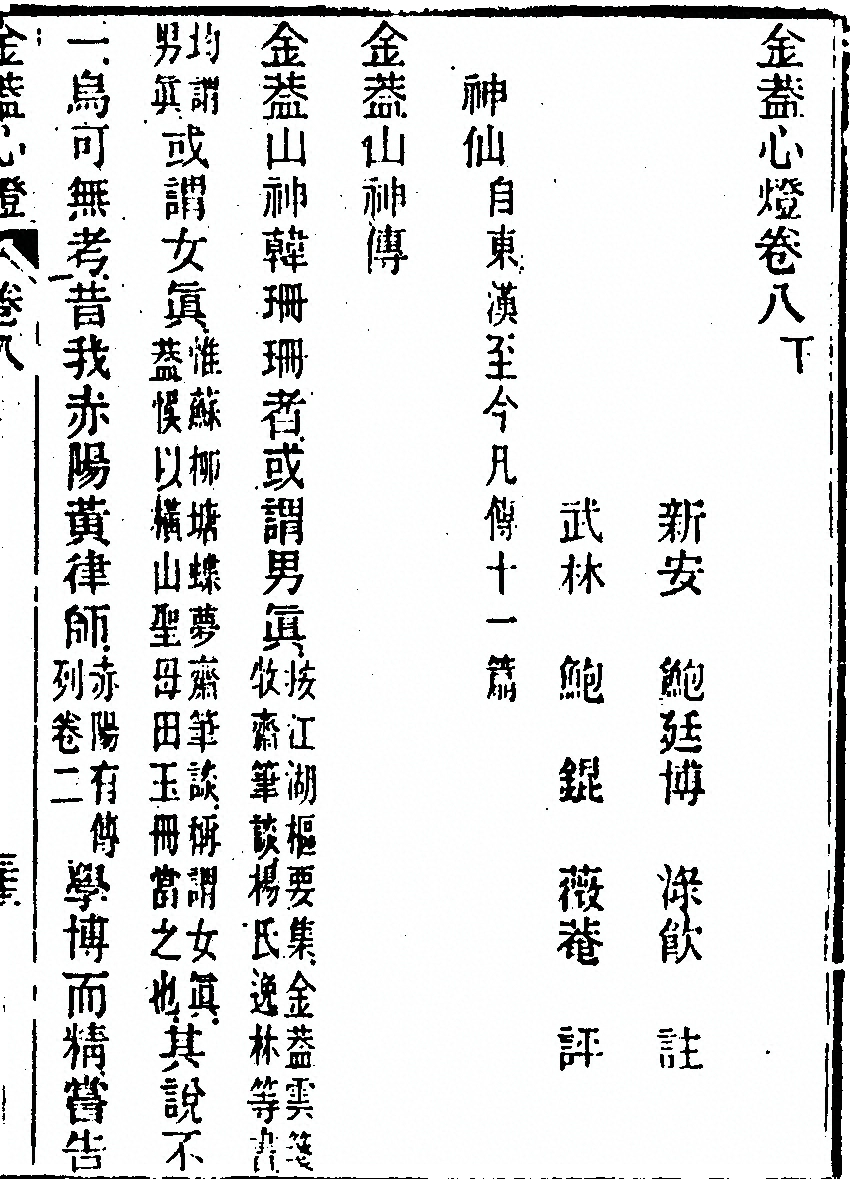 金蓋心燈卷八下
新安 鮑廷博 淥飮 註
武林 鮑 錕 薇菴 評
神仙自東漢至今凡傳十一篇
金蓋山神傳
金蓋山神韓珊珊者或謂男眞按江湖樞要集金蓋雲箋
牧齋筆談楊氏逸林等書
均謂
男眞或謂女眞惟蘇柳塘蝶夢齋筆談稱謂女眞
蓋悞以橫山聖母田玉冊當之也其說不
一烏可無考昔我赤陽黃律師赤陽有傳
列卷二學博而精嘗告
金蓋心燈 卷八